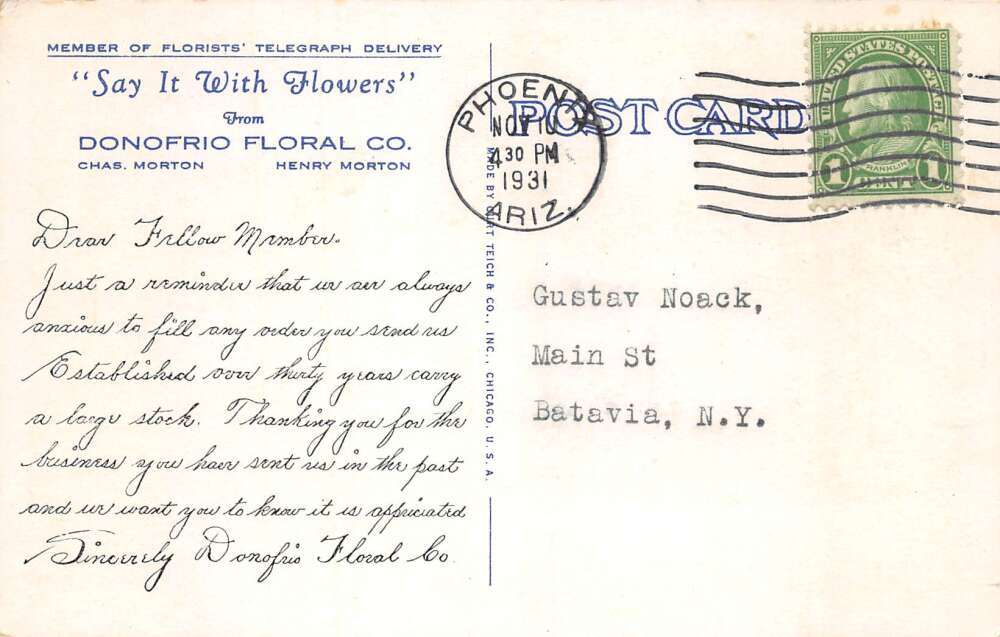 MEMBER OF FLORISTS' TELEGRAPH DELIVERY
"Say It With Flowers"
From
DONOFRIO FLORAL CO.
CHAS. MORTON HENRY MORTON
Dear Fellow Member.
Just a reminder that we are always
anxious to fill any order you send us
Established over thirty years carry
a large stock. Thanking you for the
business you have sent us in the past
and we want you to know it is appriciated
Sincerely Donofrio Floral Co.
MADE BY CURT TEICH & CO., INC., CHICAGO, U.S.A.
POST CARD
PHOENIX
NOV 10
4 30 PM
1931
ARIZ.
UNITED STATES POSTAGE
FRANKLIN
1 CENT 1
Gustav Noack,
Main St
Batavia, N.Y.